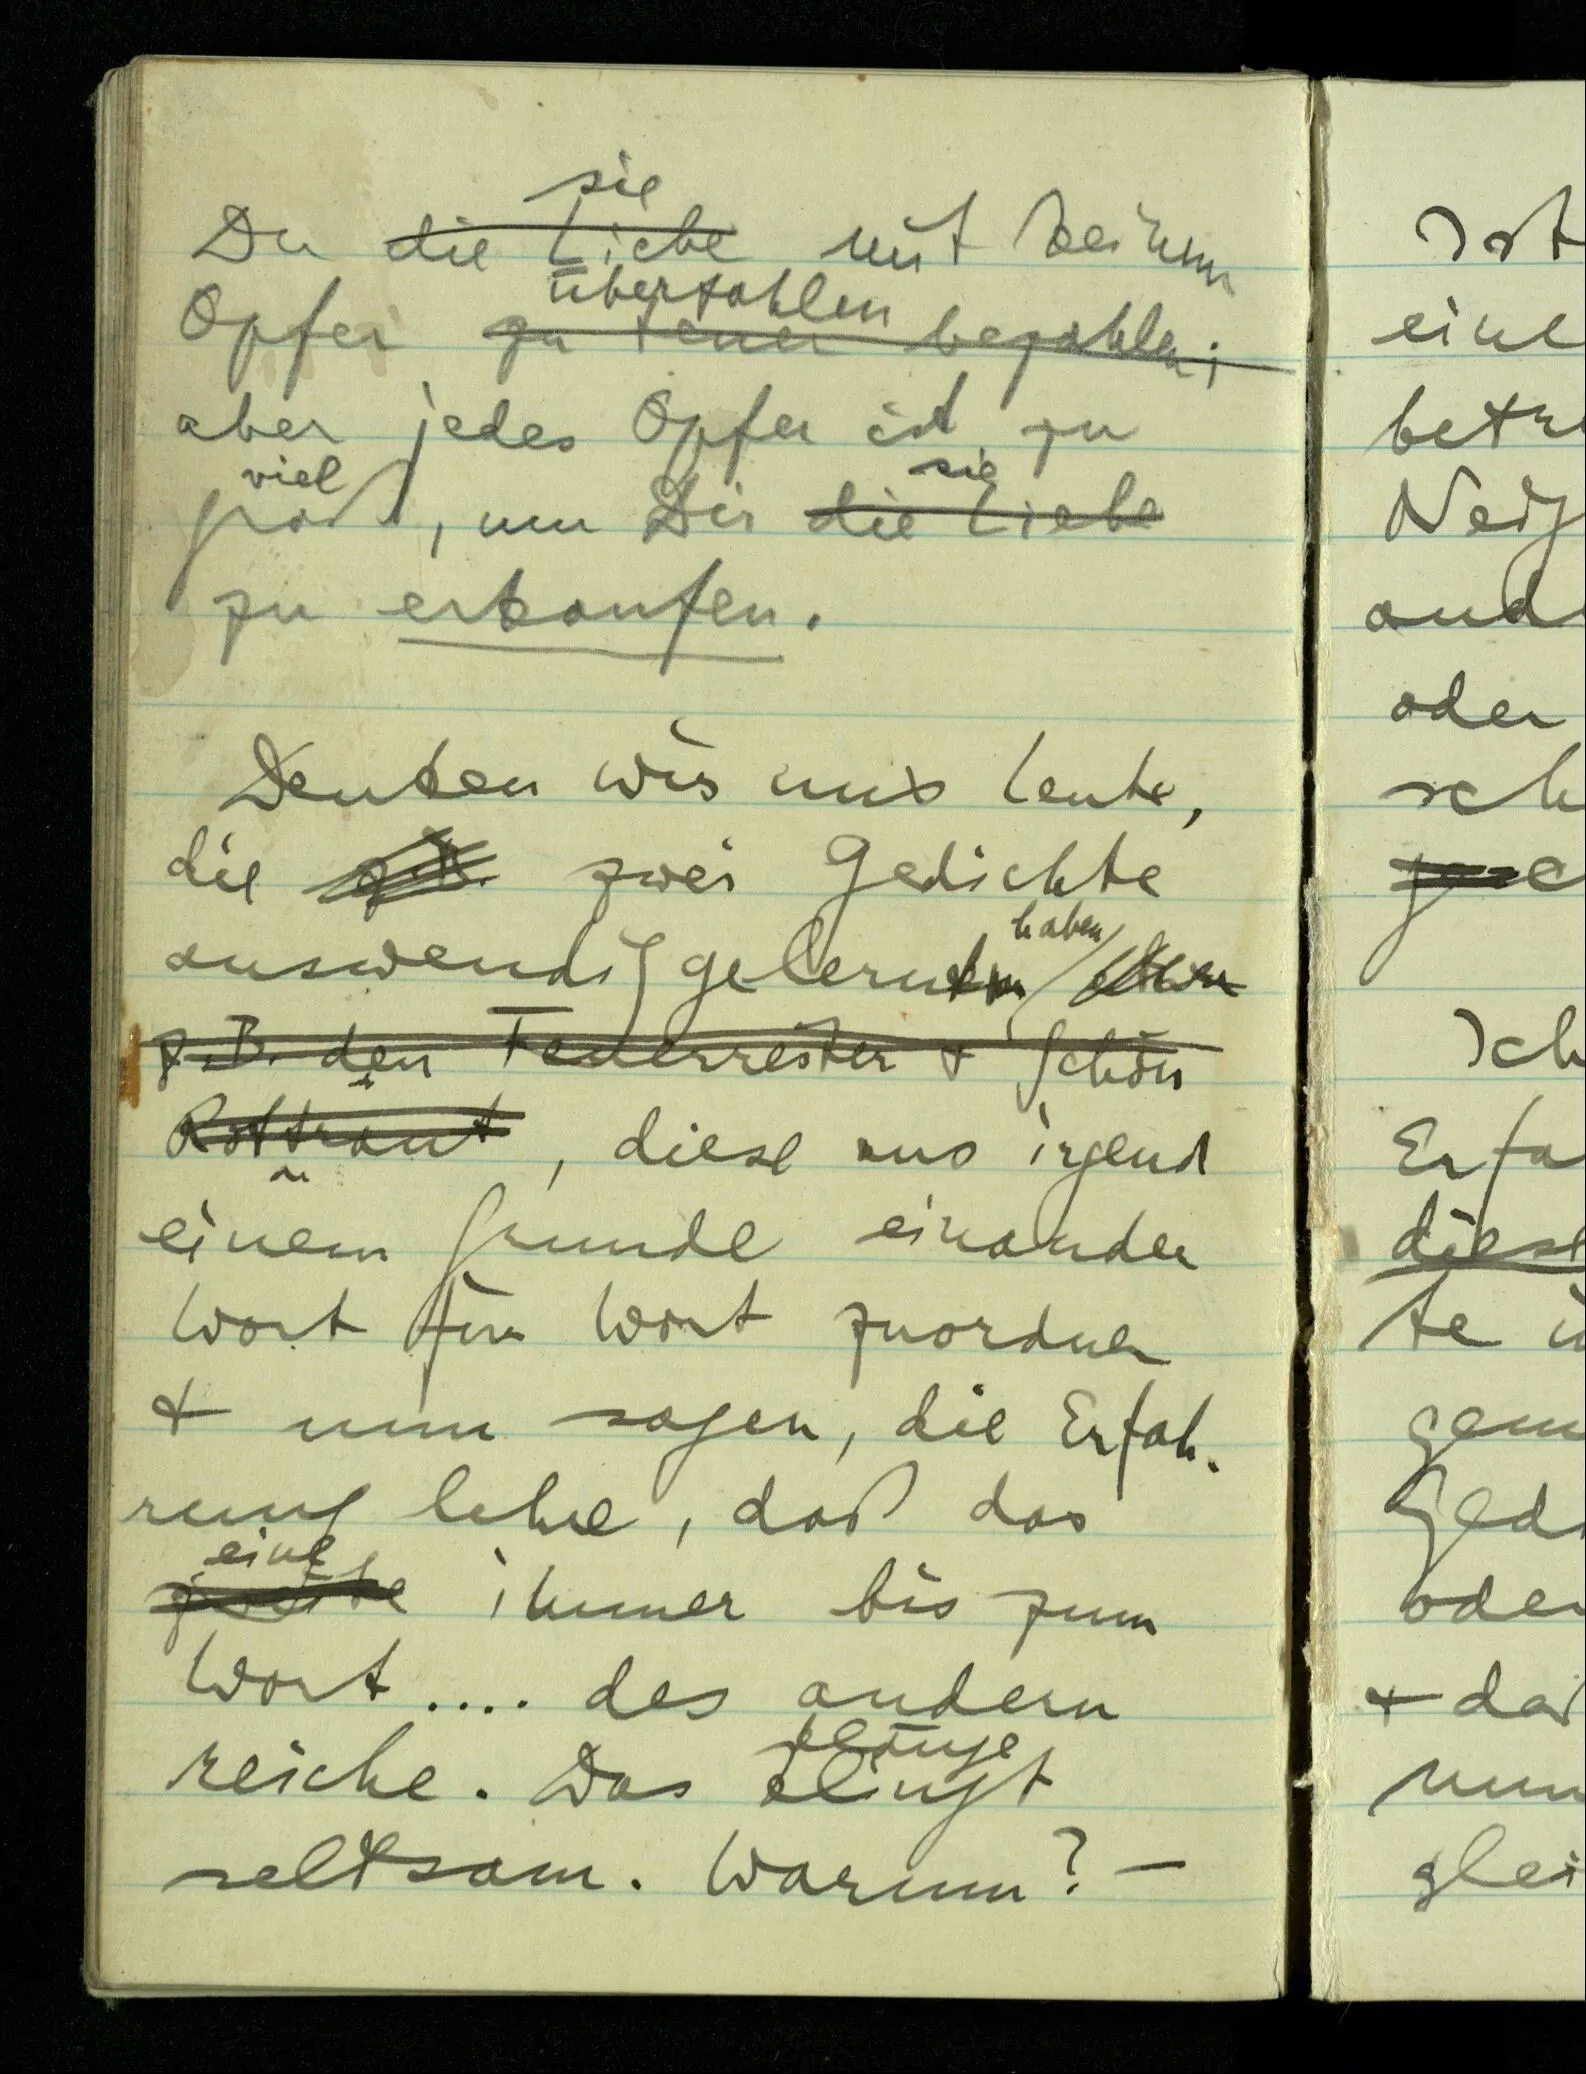 sie
Du die Liebe mit keinem
überzahlen
Opfer zu teuer bezahlen;
aber jedes Opfer ist zu
viel sie
groß, um Dir die Liebe
zu erkaufen.
Denken wir uns Leute,
die z.B. zwei Gedichte
haben
auswendig gelernt
z.B. den Feuerreiter & Schön
Rottraut, diese aus irgend
einem Grunde einander
Wort für Wort zuordnen
& nun sagen, die Erfah-
rung lehre, daß das
eine
zweite immer bis zum
Wort .... des andern
klänge
reiche. Das klingt
seltsam. Warum? –
Ist
eine
betr
Neig
and
oder
sch
Ich
Erfa
diese
te
gem
Ged
oder
& daß
nun
glei